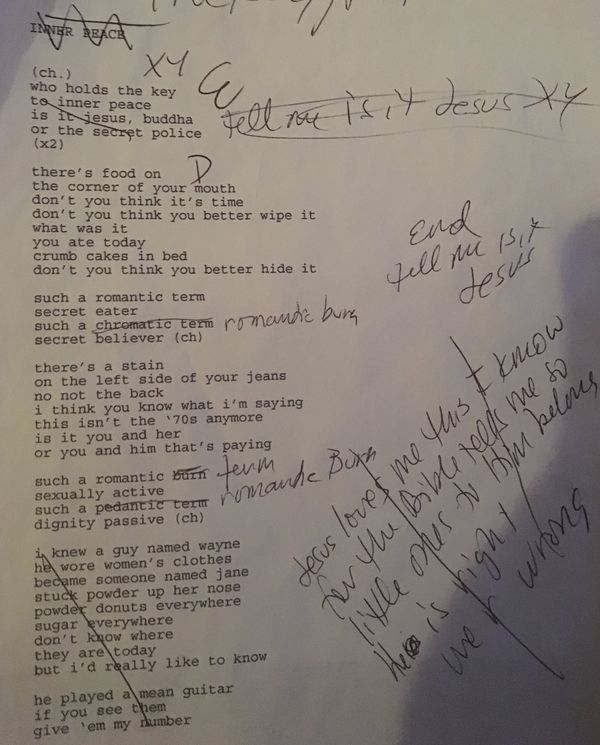 INNER PEACE
XY
(ch.)
who holds the key
to inner peace
is it jesus, buddha
or the secret police
(x2)
tell me is it Jesus XY
there's food on
D
the corner of your mouth
don't you think it's time
don't you think you better wipe it
what was it
you ate today
crumb cakes in bed
don't you think you better hide it
End
tell me is it
Jesus
such a romantic term
secret eater
such a chromatic term romantic burn
secret believer (ch)
there's a stain
on the left side of your jeans
no not the back
i think you know what i'm saying
this isn't the '70s anymore
is it you and her
or you and him that's paying
such a romantic burn term
sexually active
such a pedantic term romantic Burn
dignity passive (ch)
Jesus loves me this I know
for the Bible tells me so
little ones to him belong
he is right
we r wrong
i knew a guy named wayne
he wore women's clothes
became someone named jane
stuck powder up her nose
powder donuts everywhere
sugar everywhere
don't know where
they are today
but i'd really like to know
he played a mean guitar
if you see them
give 'em my number